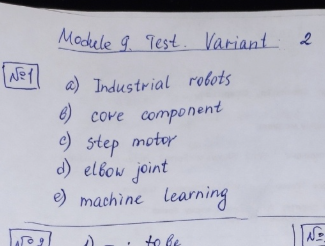 Module 9. Test. Variant 2
№1
a) Industrial robots
b) core component
c) step motor
d) elbow joint
e) machine learning
to be